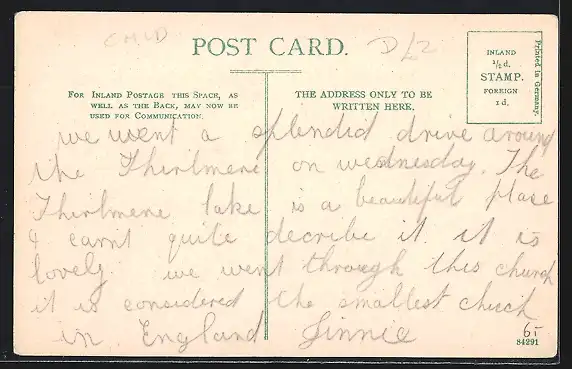 CHILD
D/2
POST CARD.
INLAND
½ d.
STAMP.
FOREIGN
1 d.
Printed in Germany.
FOR INLAND POSTAGE THIS SPACE, AS
WELL AS THE BACK, MAY NOW BE
USED FOR COMMUNICATION.
THE ADDRESS ONLY TO BE
WRITTEN HERE.
we went a splendid drive around
the Thirlmere on wednesday. The
Thirlmere lake is a beautiful plase
I carnt quite decribe it it is
lovely we went through this church
it is considered the smallest chuch
in England Jinnie
6/-
84291